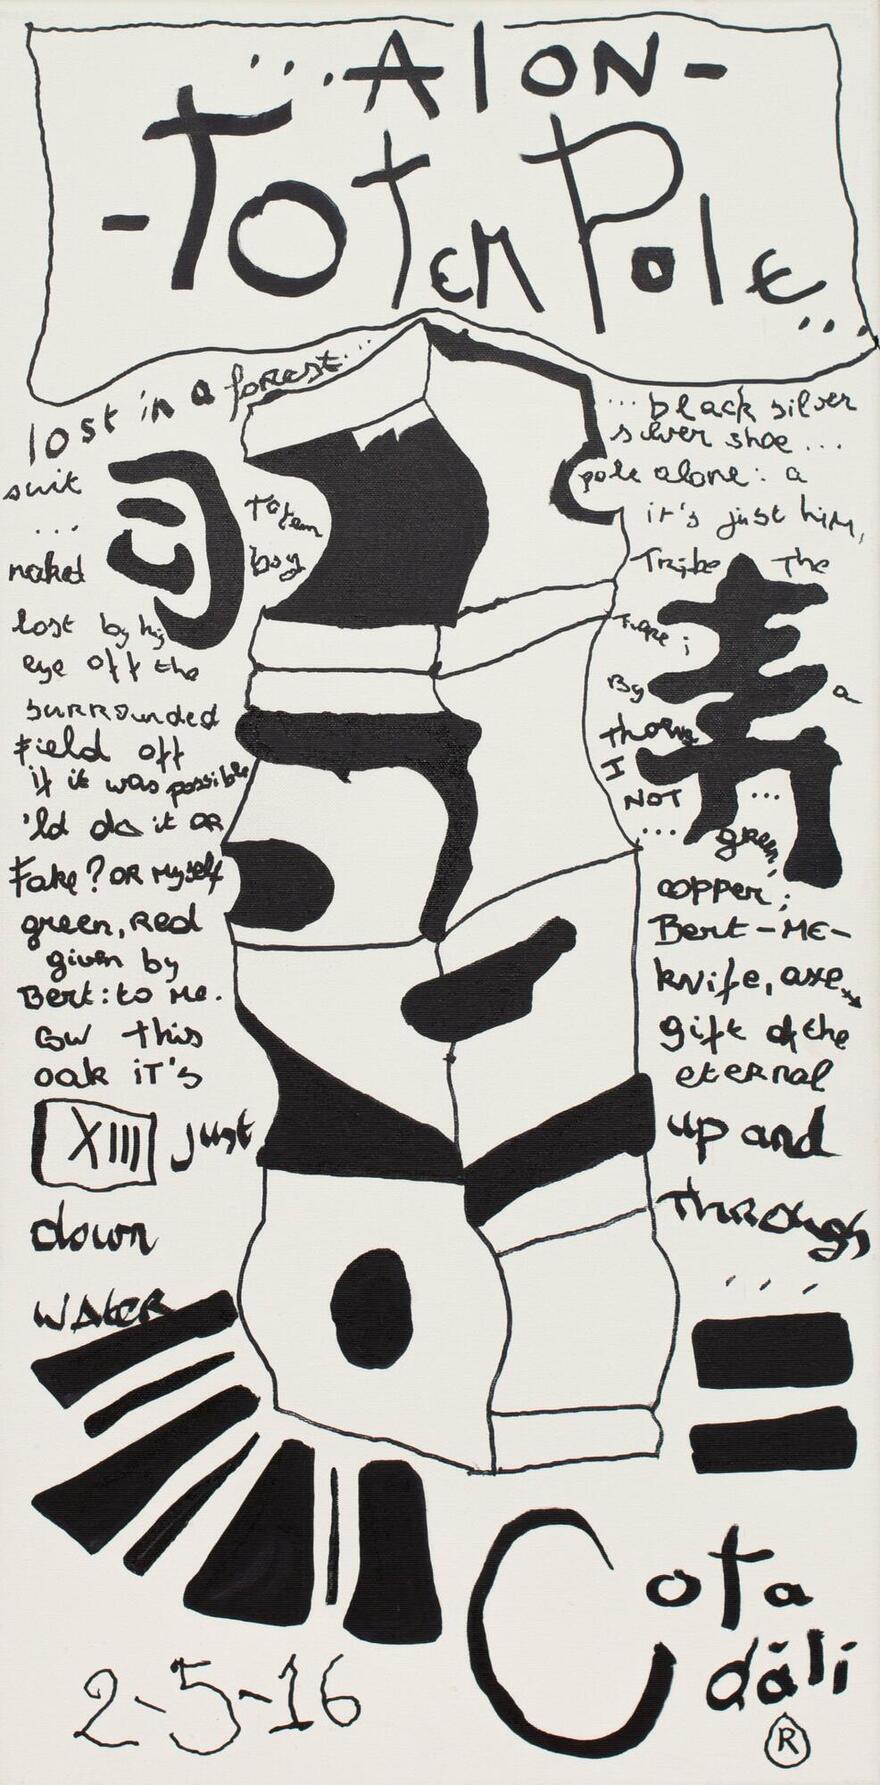 ...AION-
-Totem Pole...
lost in a forest...
suit
...
naked
Totem
boy
lost by his
eye off the
surrounded
Field off
if it was possible
'ld do it OR
Fake? OR Myself
green, Red
given by
Bert: to Me.
this
oak iT's
XIII just
down
WAteR
... black silver
silver shoe...
pole alone: a
it's just him,
Tribe The
By a
I
NOT ...
... green,
copper;
Bert-ME-
knife, axe,
gift of the
eteRnal
up and
ThRough
...
2-5-16
Cota
dáli
®